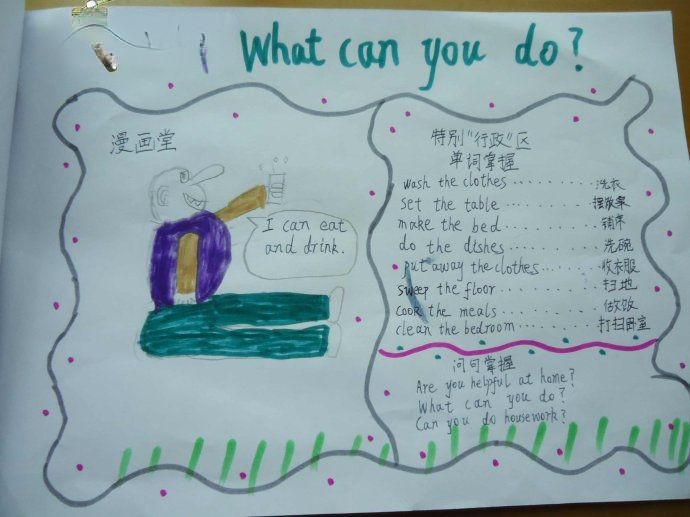 What can you do?
漫画堂
I can eat
and drink.
特别"行政"区
单词掌握
wash the clothes .......... 洗衣
set the table .......... 摆放桌
make the bed .......... 铺床
do the dishes .......... 洗碗
put away the clothes ....... 收衣服
sweep the floor .......... 扫地
cook the meals .......... 做饭
clean the bedroom .......... 打扫卧室
问句掌握
Are you helpful at home?
What can you do?
Can you do housework?